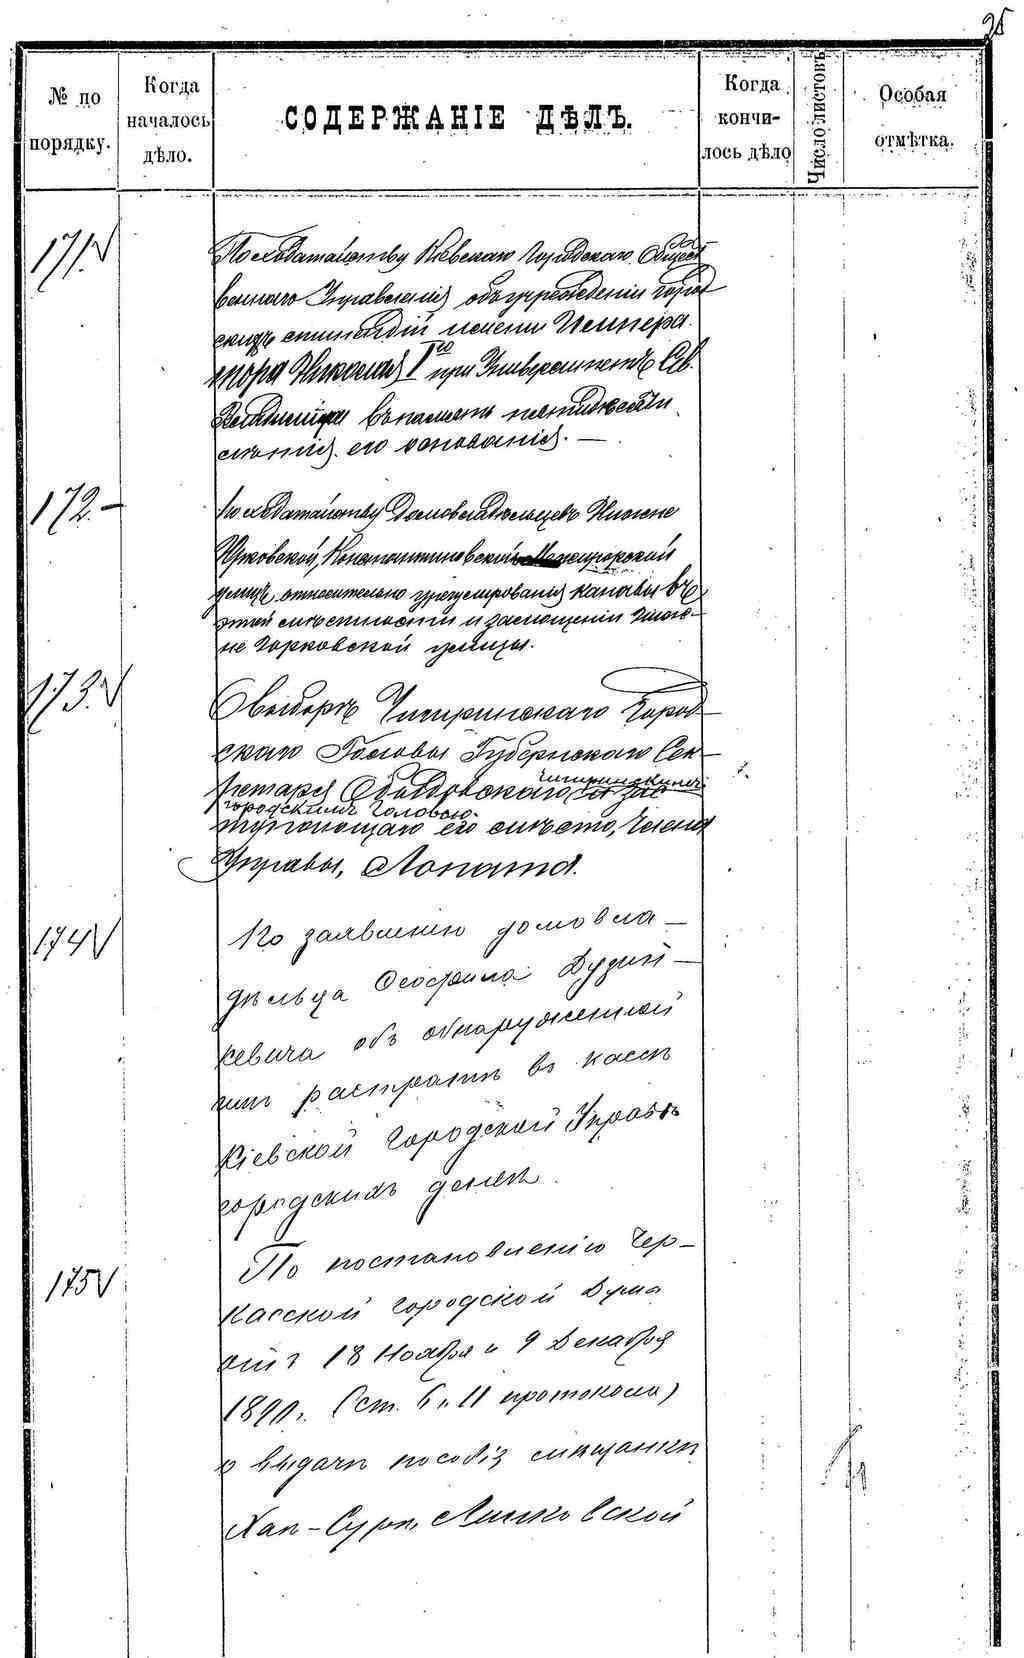 25
№ по порядку.
Когда началось дѣло.
СОДЕРЖАНІЕ ДѢЛЪ.
Когда кончилось дѣло
Число листовъ
Особая отмѣтка.
171.
По ходатайству Кіевскаго Городскаго Общест
веннаго Управленія объ учрежденіи город
скихъ стипендій имени Импера
тора Николая Iго при Университетѣ Св.
Владиміра въ память пятидесяти
лѣтія его основанія. —
172. —
По ходатайству Домовладѣльцевъ Нижне
Юрковской, Константиновской Межигорской
улицъ относительно урегулированія канавы въ
этой мѣстности и замощеніи Ниж-
не Юрковской улицы.
173.
О выборѣ Чигиринскаго Город-
скаго Головы Губернскаго Сек-
ретаря
Чигиринскимъ
Городскимъ Головою
его мѣсто, Члена
Управы, Лопата.
174
По заявленію домовла-
дѣльца Феофила Дудин-
кевича объ обнаруженной
имъ растратѣ въ кассѣ
Кіевской Городской Управѣ
городскихъ денегъ.
175
По постановленію Чер-
касской городской Думы
отъ 18 Ноября и 9 Декабря
1890г. (ст. 6 и 11 протокола)
о выдачѣ пособія мѣщанкѣ
Хаѣ-Сурѣ Линковской